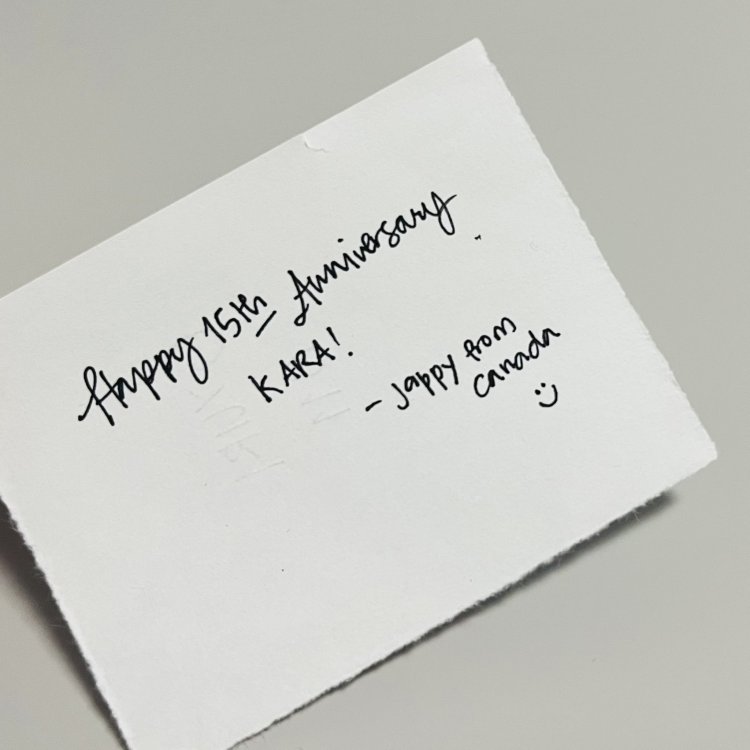 Happy 15th Anniversary
KARA!
- Jappy from
Canada